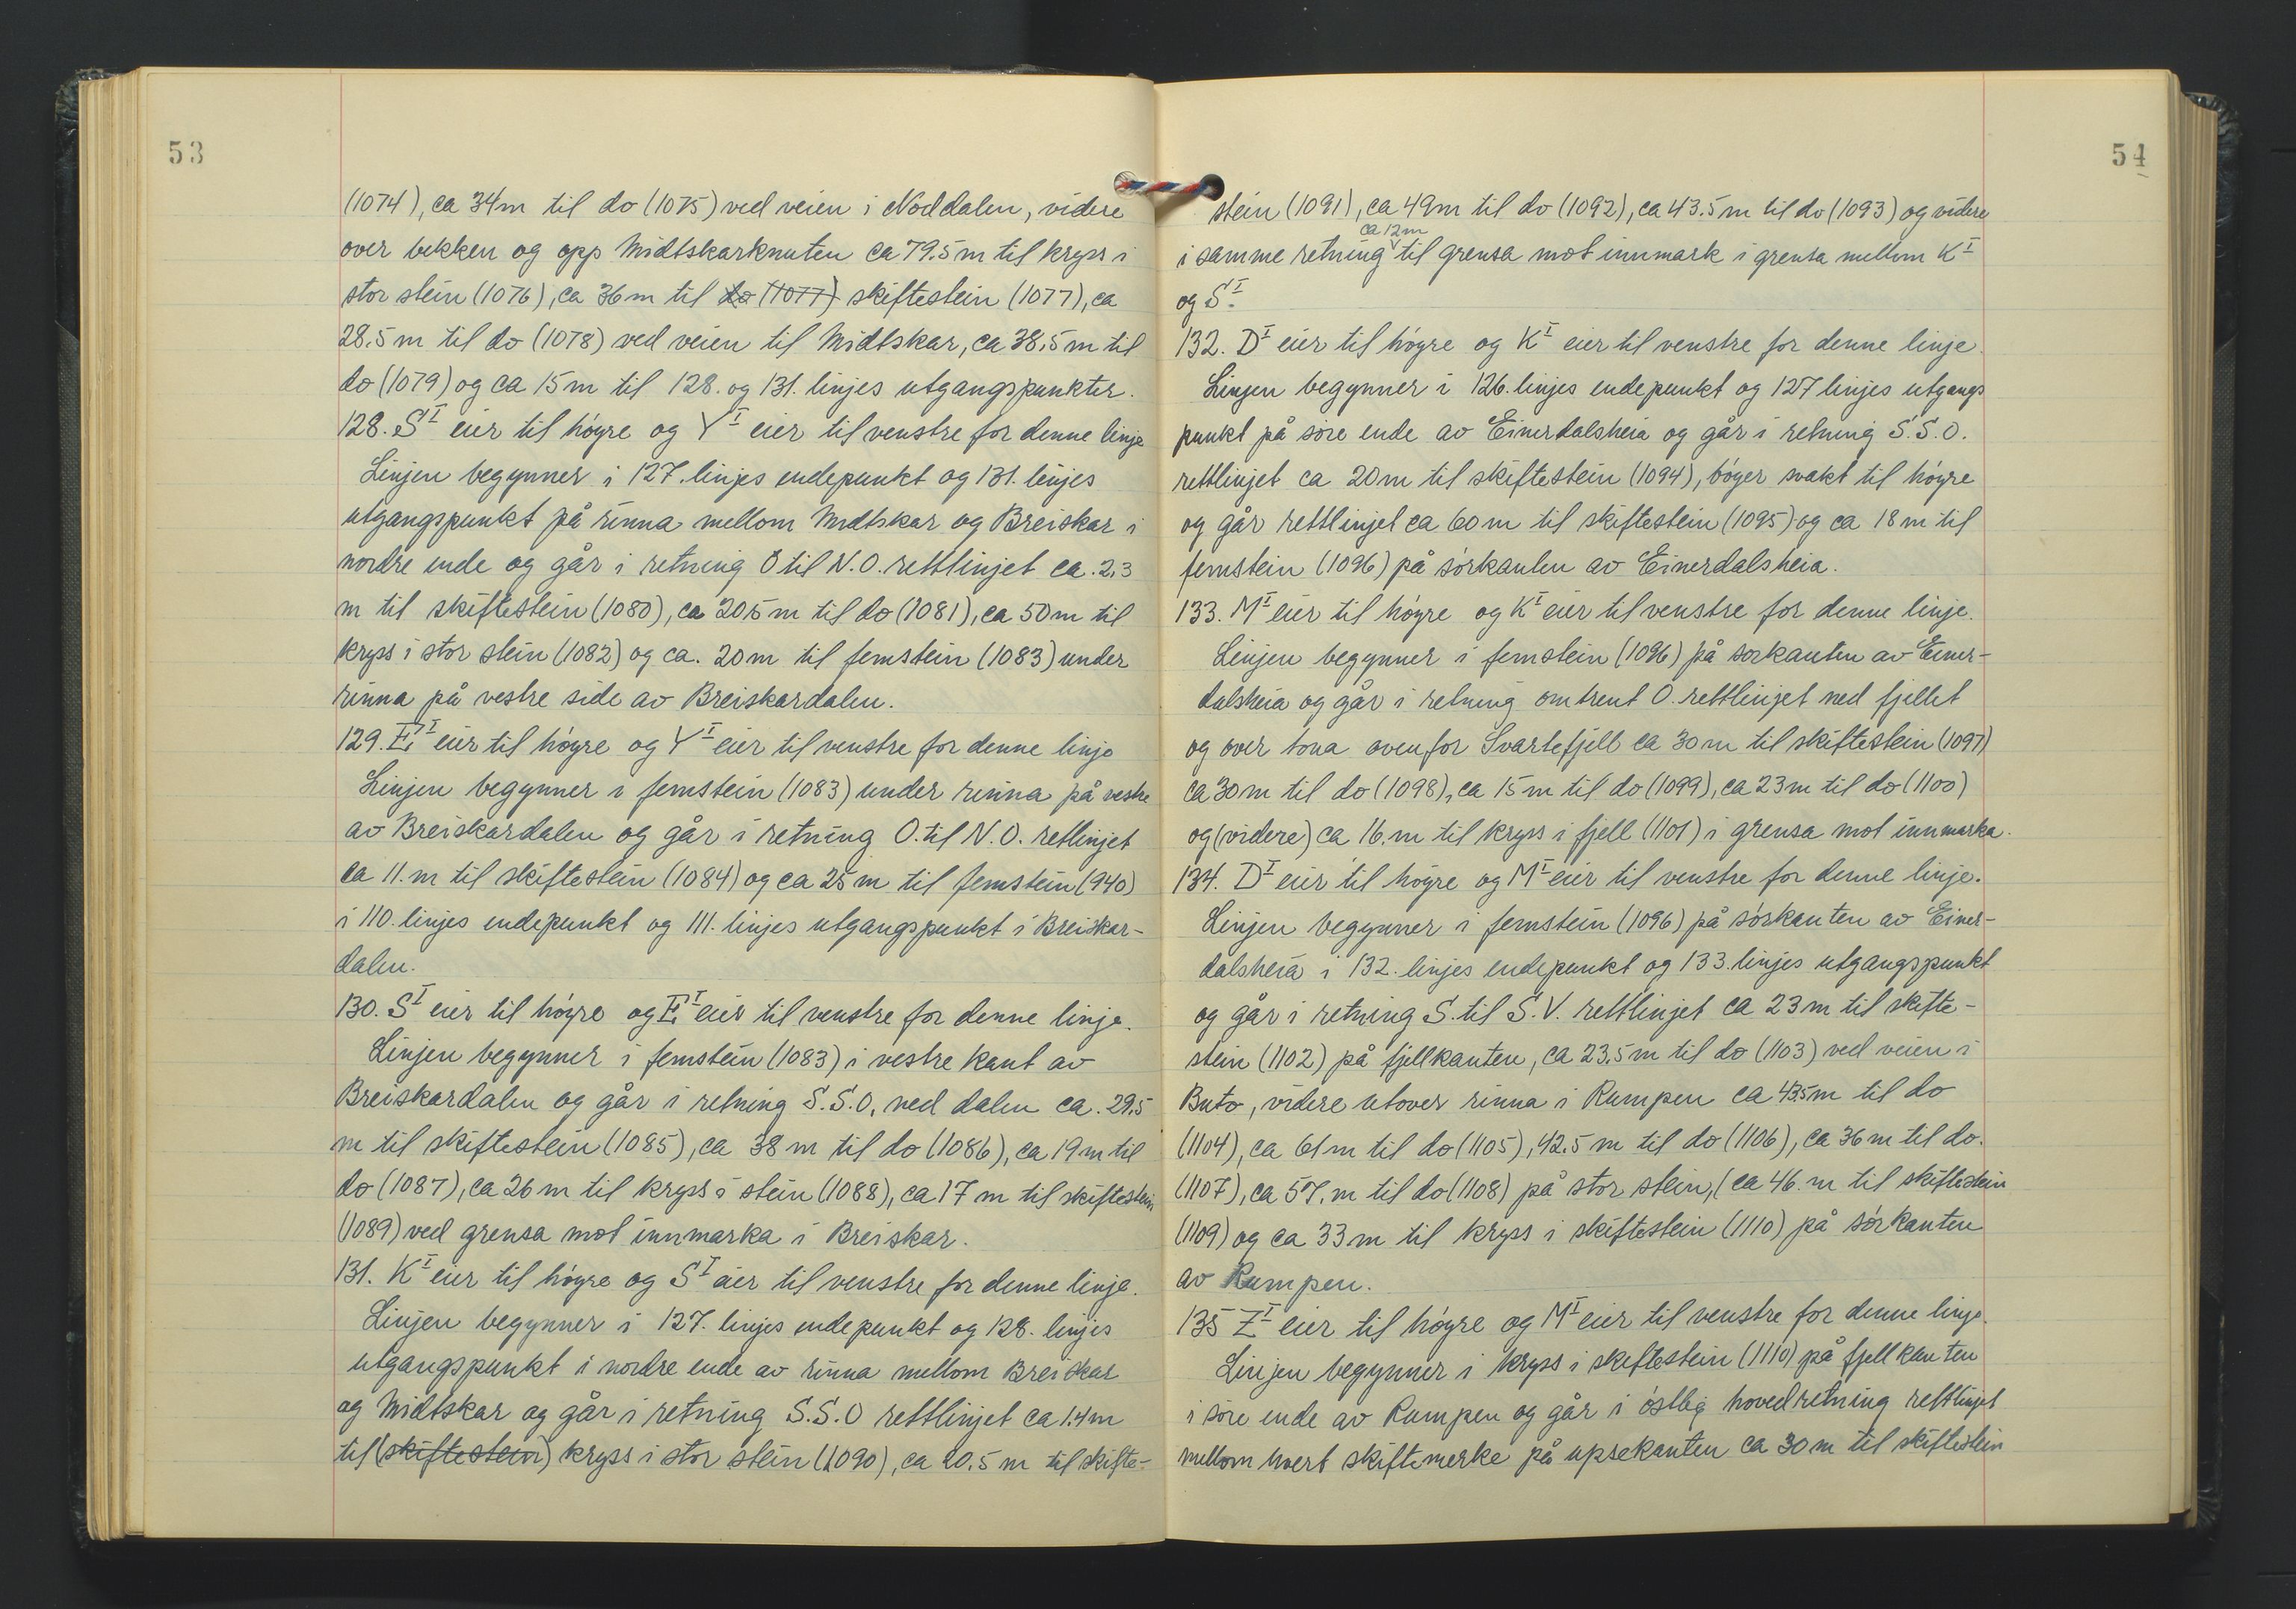 53
(1074), ca 34m til do (1075) ved veien i Noddalen, videre
over bekken og opp Midtskarknuten ca 79.5 m til kryss i
stor stein (1076), ca 36 m til do (1077) skiftestein (1077), ca
28.5 m til do (1078) ved veien til Midtskar, ca 38.5 m til
do (1079) og ca 15 m til 128. og 131. linjes utgangspunkter.
128. S^I eier til høyre og Y^I eier til venstre for denne linje
Linjen begynner i 127. linjes endepunkt og 131. linjes
utgangspunkt på rinna mellom Midtskar og Breiskar i
nordre ende og går i retning O til N.O. rettlinjet ca. 2.3
m til skiftestein (1080), ca 20.5 m til do (1081), ca 50 m til
kryss i stor stein (1082) og ca. 20 m til femstein (1083) under
rinna på vestre side av Breiskardalen.
129. E^I eier til høyre og Y^I eier til venstre for denne linje
Linjen begynner i femstein (1083) under rinna på vestre
av Breiskardalen og går i retning O. til N.O. retlinjet
ca 11. m til skiftestein (1084) og ca 25 m til femstein (940)
i 110. linjes endepunkt og 111. linjes utgangspunkt i Breiskar-
dalen.
130. S^I eier til høyre og E^I eier til venstre for denne linje.
Linjen begynner i femstein (1083) i vestre kant av
Breiskardalen og går i retning S.S.O. ned dalen ca. 29.5
m til skiftestein (1085), ca 38 m til do (1086), ca 19 m til
do (1087), ca 26 m til kryss i stein (1088), ca 17 m til skiftestein
(1089) ved grensa mot innmarka i Breiskar.
131. K^I eier til høyre og S^I eier til venstre for denne linje.
Linjen begynner i 127. linjes endepunkt og 128. linjes
utgangspunkt i nordre ende av rinna mellom Breiskar
og Midtskar og går i retning S.S.O rettlinjet ca 1.4 m
til (skiftestein) kryss i stor stein (1090), ca 20.5 m til skifte-
54
stein (1091), ca 49 m til do (1092), ca 43.5 m til do (1093) og videre
ca 12 m
i samme retning til grensa mot innmark i grensa mellom K^I
og S^I.
132. D^I eier til høyre og K^I eier til venstre for denne linje.
Linjen begynner i 126. linjes endepunkt og 127 linjes utgangs
punkt på søre ende av Einerdalsheia og går i retning S.S.O.
rettlinjet ca 20 m til skiftestein (1094), bøyer svakt til høyre
og går rettlinjet ca 60 m til skiftestein (1095) og ca 18 m til
femstein (1096) på sørkanten av Einerdalsheia.
133. M^I eier til høyre og K^I eier til venstre for denne linje.
Linjen begynner i femstein (1096) på sørkanten av Einer-
dalsheia og går i retning omtrent O. rettlinjet ned fjellet
og over tona ovenfor Svartefjell ca 30 m til skiftestein (1097)
ca 30 m til do (1098), ca 15 m til do (1099), ca 23 m til do (1100)
og (videre) ca 16. m til kryss i fjell (1101) i grensa mot innmarka.
134. D^I eier til høyre og M^I eier til venstre for denne linje.
Linjen begynner i femstein (1096) på sørkanten av Einer-
dalsheia i 132. linjes endepunkt og 133. linjes utgangspunkt
og går i retning S. til S.V. rettlinjet ca 23 m til skifte-
stein (1102) på fjellkanten, ca 23.5 m til do (1103) ved veien i
Buto, videre utover rinna i Rumpen ca 43.5 m til do
(1104), ca 61 m til do (1105), 42.5 m til do (1106), ca 36 m til do.
(1107), ca 57. m til do (1108) på stor stein, (ca 46. m til skiftestein
(1109) og ca 33 m til kryss i skiftestein (1110) på sørkanten
av Rumpen.
135 Z^I eier til høyre og M^I eier til venstre for denne linje.
Linjen begynner i kryss i skiftestein (1110) på fjellkanten
i søre ende av Rumpen og går i østlig hovedretning rettlinjet
mellom hvert skiftemerke på upsekanten ca 30 m til skiftestein